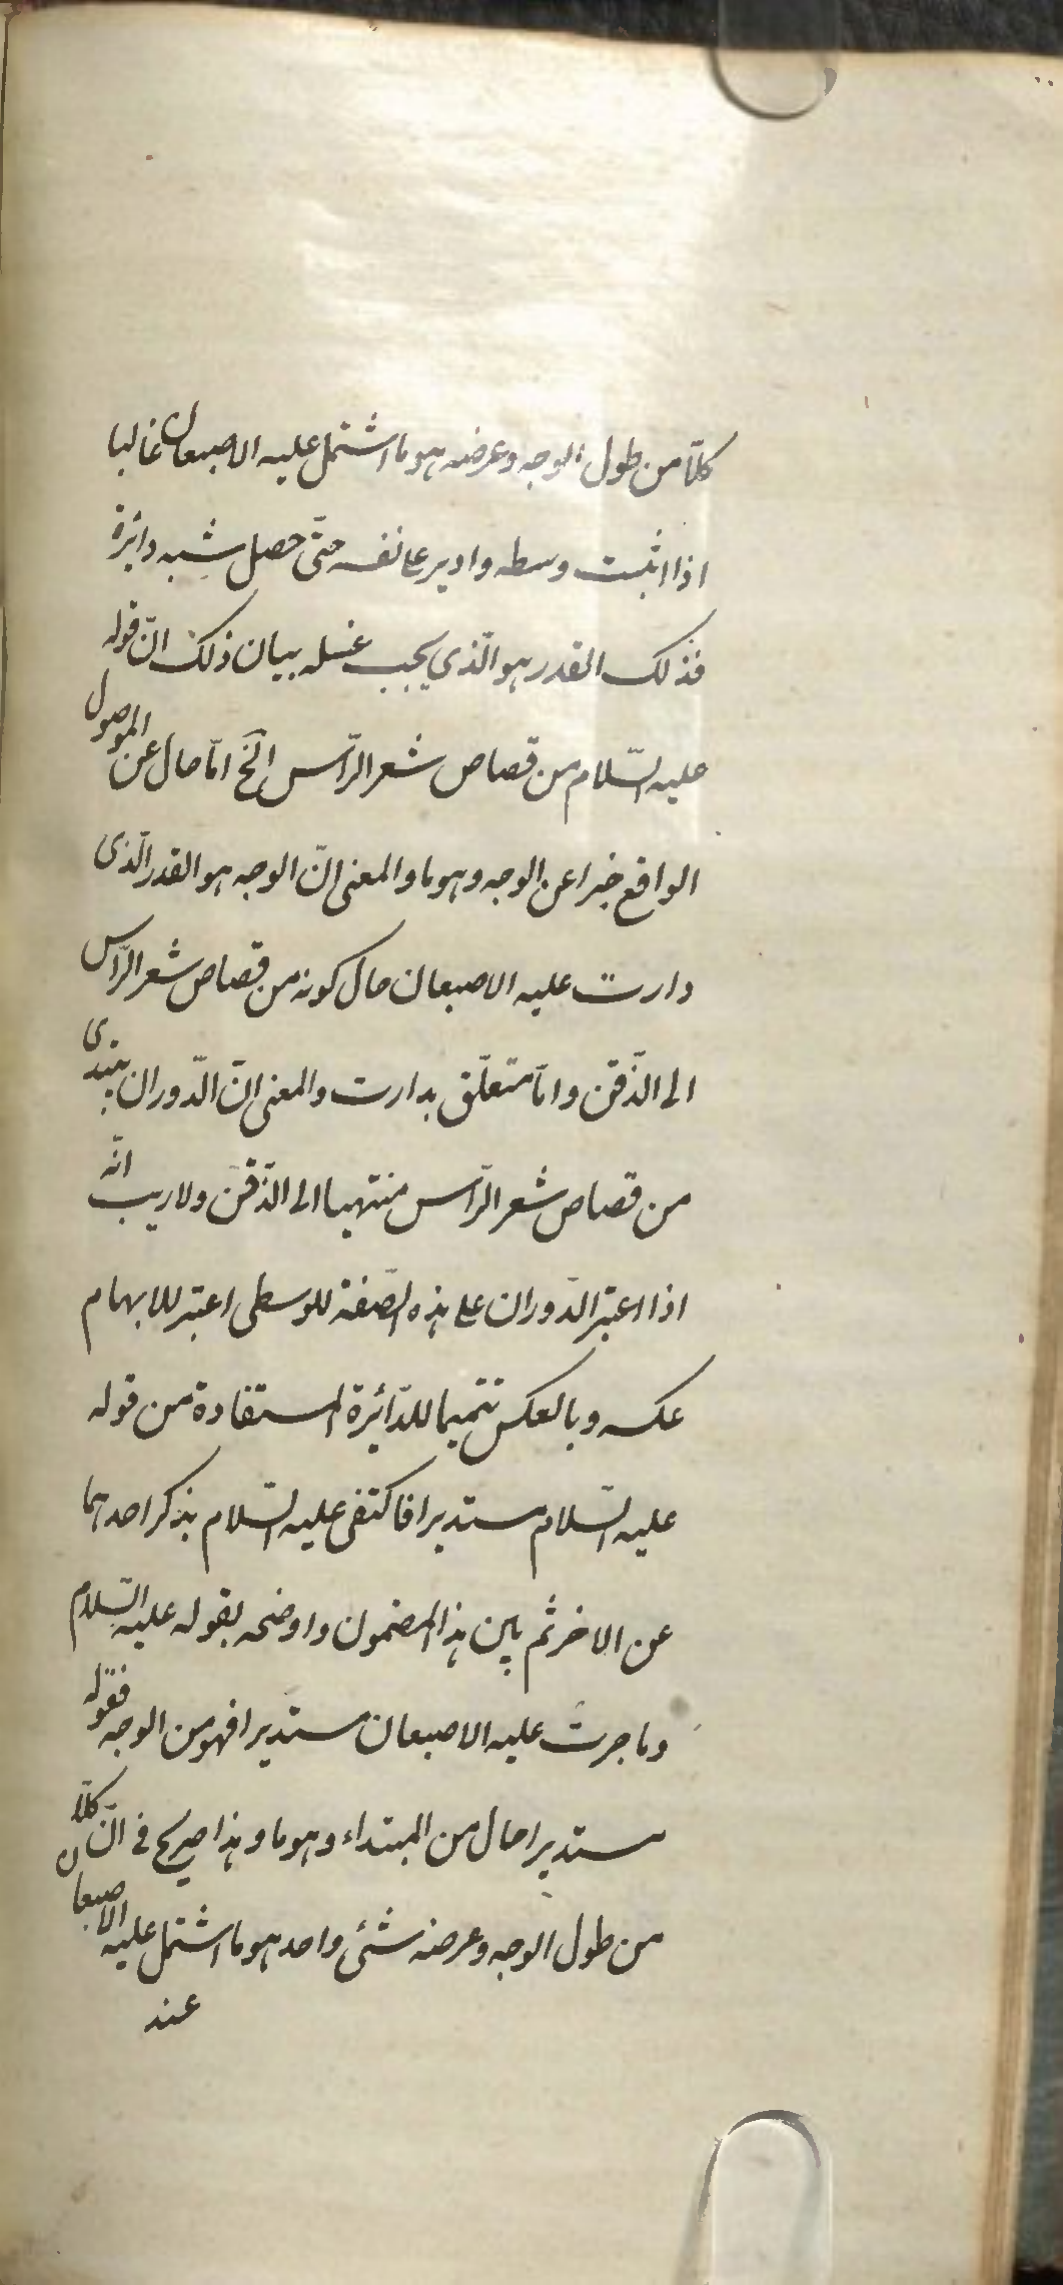 كلّا من طول الوجه وعرضه هو ما اشتمل عليه الاصبعان غالبا
اذا اثبت وسطه وادير على نفسه حتّى حصل شبه دائرة
فذلك القدر هو الّذي يجب غسله بيان ذلك انّ قوله
عليه السّلام من قصاص شعر الرّاس الخ امّا حال عن الموصول
الواقع خبرا عن الوجه وهو ما والمعنى انّ الوجه هو القدر الّذى
دارت عليه الاصبعان حال كونه من قصاص شعر الرّاس
الى الذّقن وامّا متعلّق بدارت والمعنى انّ الدّوران يبتدى
من قصاص شعر الرّاس منتهيا الى الذّقن ولا ريب انّه
اذا اعتبر الدّوران على هذه الصّفة للوسطى اعتبر للابهام
عكسه وبالعكس تتميما للدّائرة المستفادة من قوله
عليه السّلام مستديرا فاكتفى عليه السّلام بذكر احدهما
عن الاخر ثم بين هذا المضمون واوضحه بقوله عليه السّلام
وما جرت عليه الاصبعان مستديرا فهو من الوجه فقوله
مستديرا حال من المبتداء وهو ما وهذا صريح فى انّ كلّا
من طول الوجه وعرضه شئى واحد هو ما اشتمل عليه الاصبعان
عند